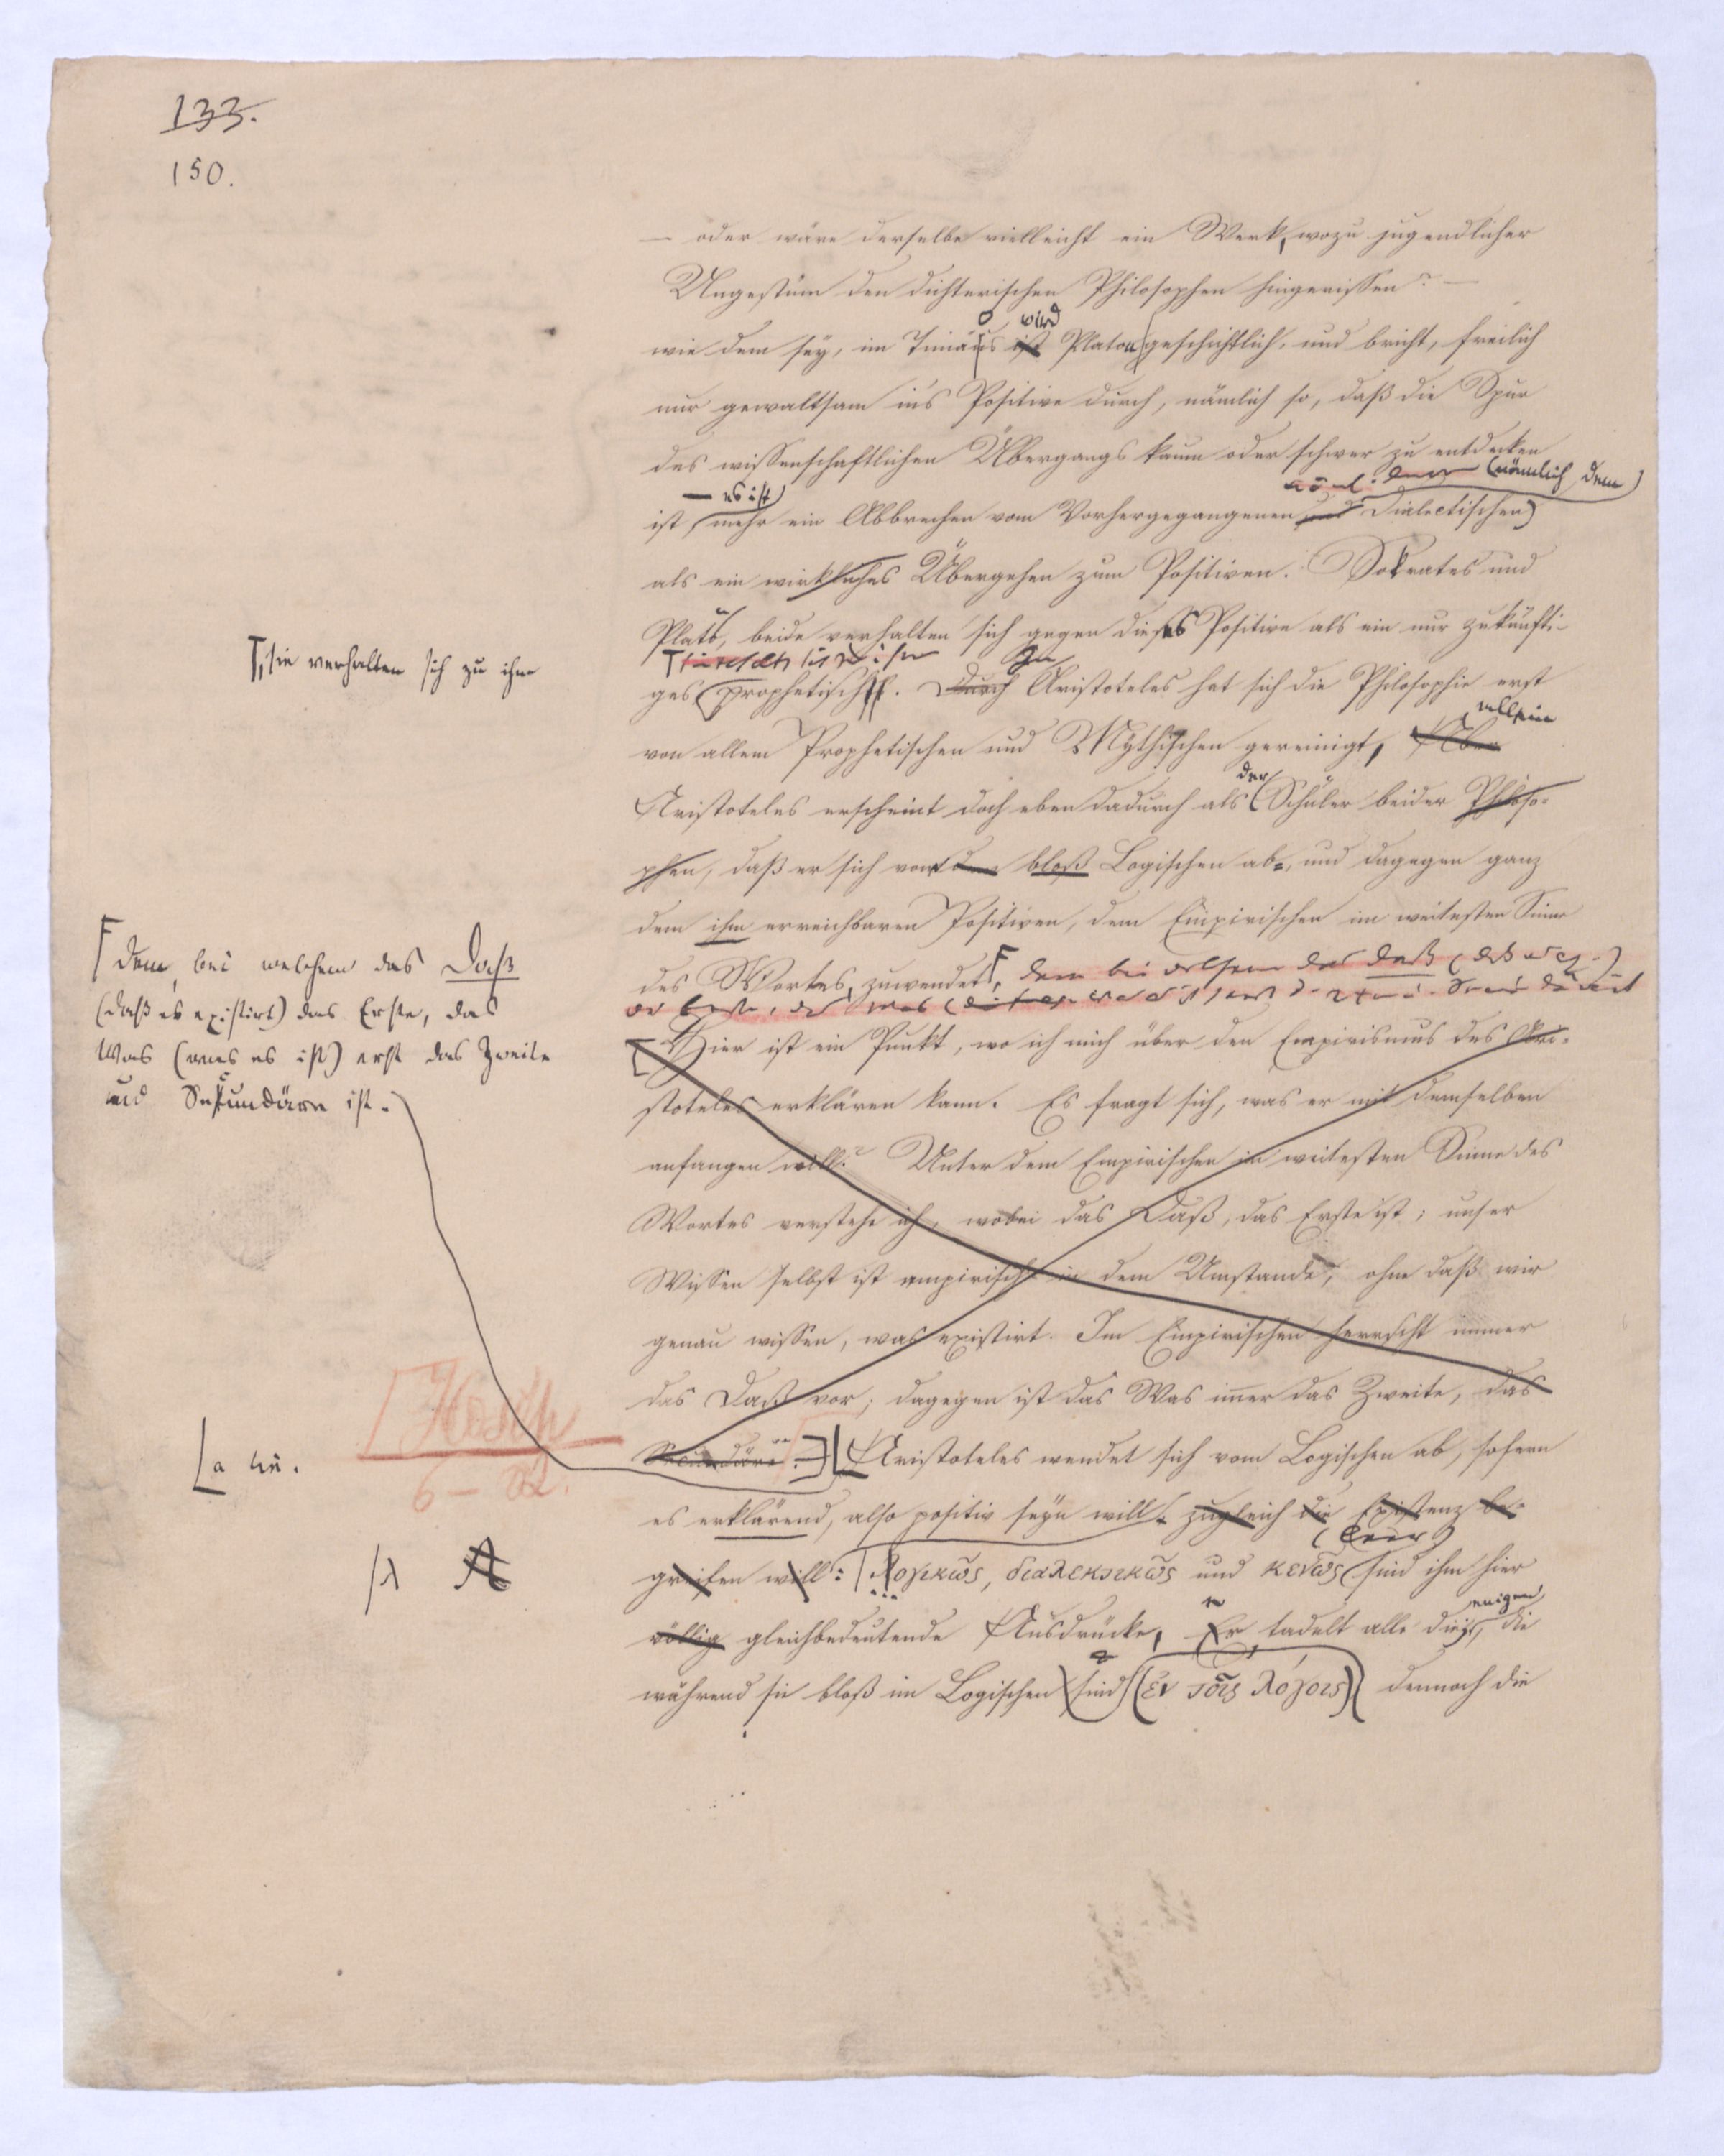 133.
150.
— oder wäre derselbe vielleicht ein Werk, wozu jugendlicher
Ungestüm den dichterischen Philosophen hingerissen? —
wird
wie dem sey, im Timäus ist Platon geschichtlich, und bricht, freilich
nur gewaltsam ins Positive durch, nämlich so, daß die Spur
des wissenschaftlichen Übergangs kaum oder schwer zu entdecken
— es ist (nämlich dem)
ist, mehr ein Abbrechen vom Vorhergegangenen und Dialectischen)
als ein wirkliches Übergehen zum Positiven. Sokrates und
Plato, beide verhalten sich gegen dieses Positive als ein nur zukünfti-
T, sie verhalten sich zu ihm
In
ges prophetisch. Durch Aristoteles hat sich die Philosophie erst
allein
von allem Prophetischen und Mythischen gereinigt, Aber
der
Aristoteles erscheint doch eben dadurch als Schüler beider Philoso-
phen, daß er sich von dem bloß Logischen ab-, und dagegen ganz
dem ihm erreichbaren Positiven, dem Empirischen im weitesten Sinne
des Wortes, zuwendet, dem bei welchem das Daß
dem, bei welchem das Daß
(daß es existirt) das Erste, das
Was (was es ist) erst das Zweite
und Sekundäre ist.
Hier ist ein Punkt, wo ich mich über den Empirismus des Ari-
stoteles erklären kann. Es fragt sich, was er mit demselben
anfangen will? Unter dem Empirischen im weitesten Sinne des
Wortes verstehe ich, wobei das Daß, das Erste ist; unser
Wissen selbst ist empirisch in dem Umstande, ohne daß wir
genau wissen, was existirt. Im Empirischen herrscht immer
das Daß vor; dagegen ist das Was immer das Zweite, das
Secundäre. Aristoteles wendet sich vom Logischen ab, sofern
es erklärend, also positiv seyn will, zugleich die Existenz be-
(leer)
greifen will: λογικῶς, διαλεκτικῶς und κενῶς sind ihm hier
λ
enigen
völlig gleichbedeutende Ausdrücke, Er tadelt alle diej, die
während sie bloß im Logischen sind (ἐν τοῖς λόγοις) dennoch die